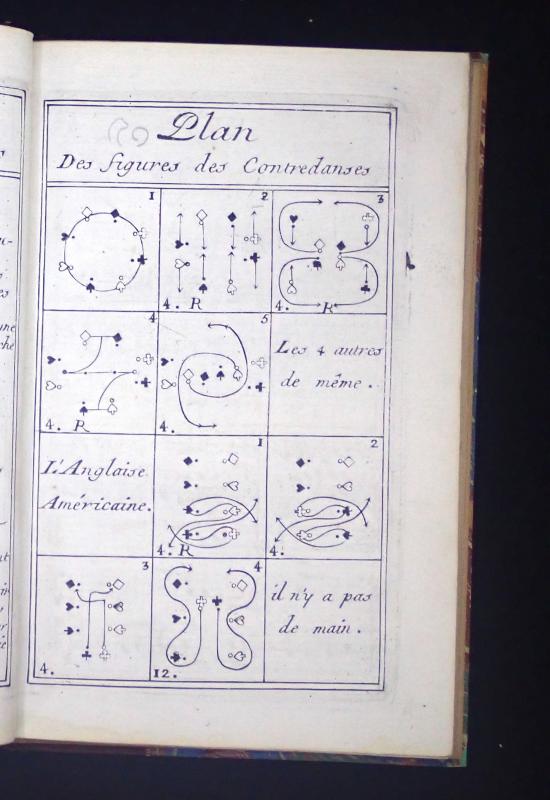 Plan
Des figures des Contredanses
1
2
4. R
3
4. R
4
4. R
5
4.
Les 4 autres
de même.
L'Anglaise
Américaine.
1
4. R
2
4.
3
4.
4
12.
il n'y a pas
de main.